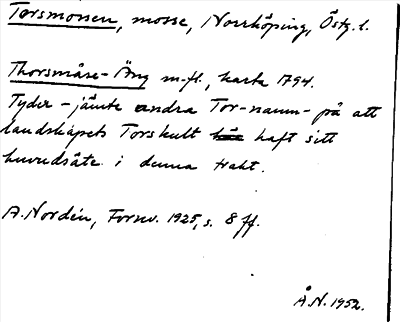 Torsmossen, mosse, Norrköping, Östg. l.
Thorsmåse-Äng m.fl., karta 1794.
Tyder - jämte andra Tor-namn - på att
landskapets Torskult haft sitt
huvudsäte i denna trakt.
A. Nordén, Fornv. 1925, s. 8 ff.
Å.N. 1952.